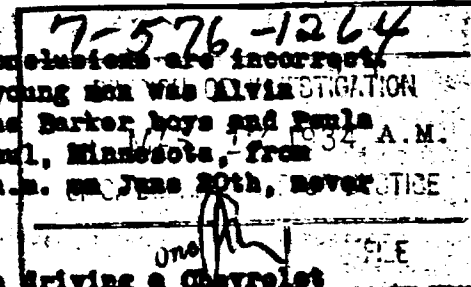 7-576-1264
onclusions are incorrect.
young man was Alvin STIGATION
he Barker boys and Paula 1934 A.M.
aul, Minnesota, from
a.m. on June 20th, never TICE
one FILE
driving a Chevrolet